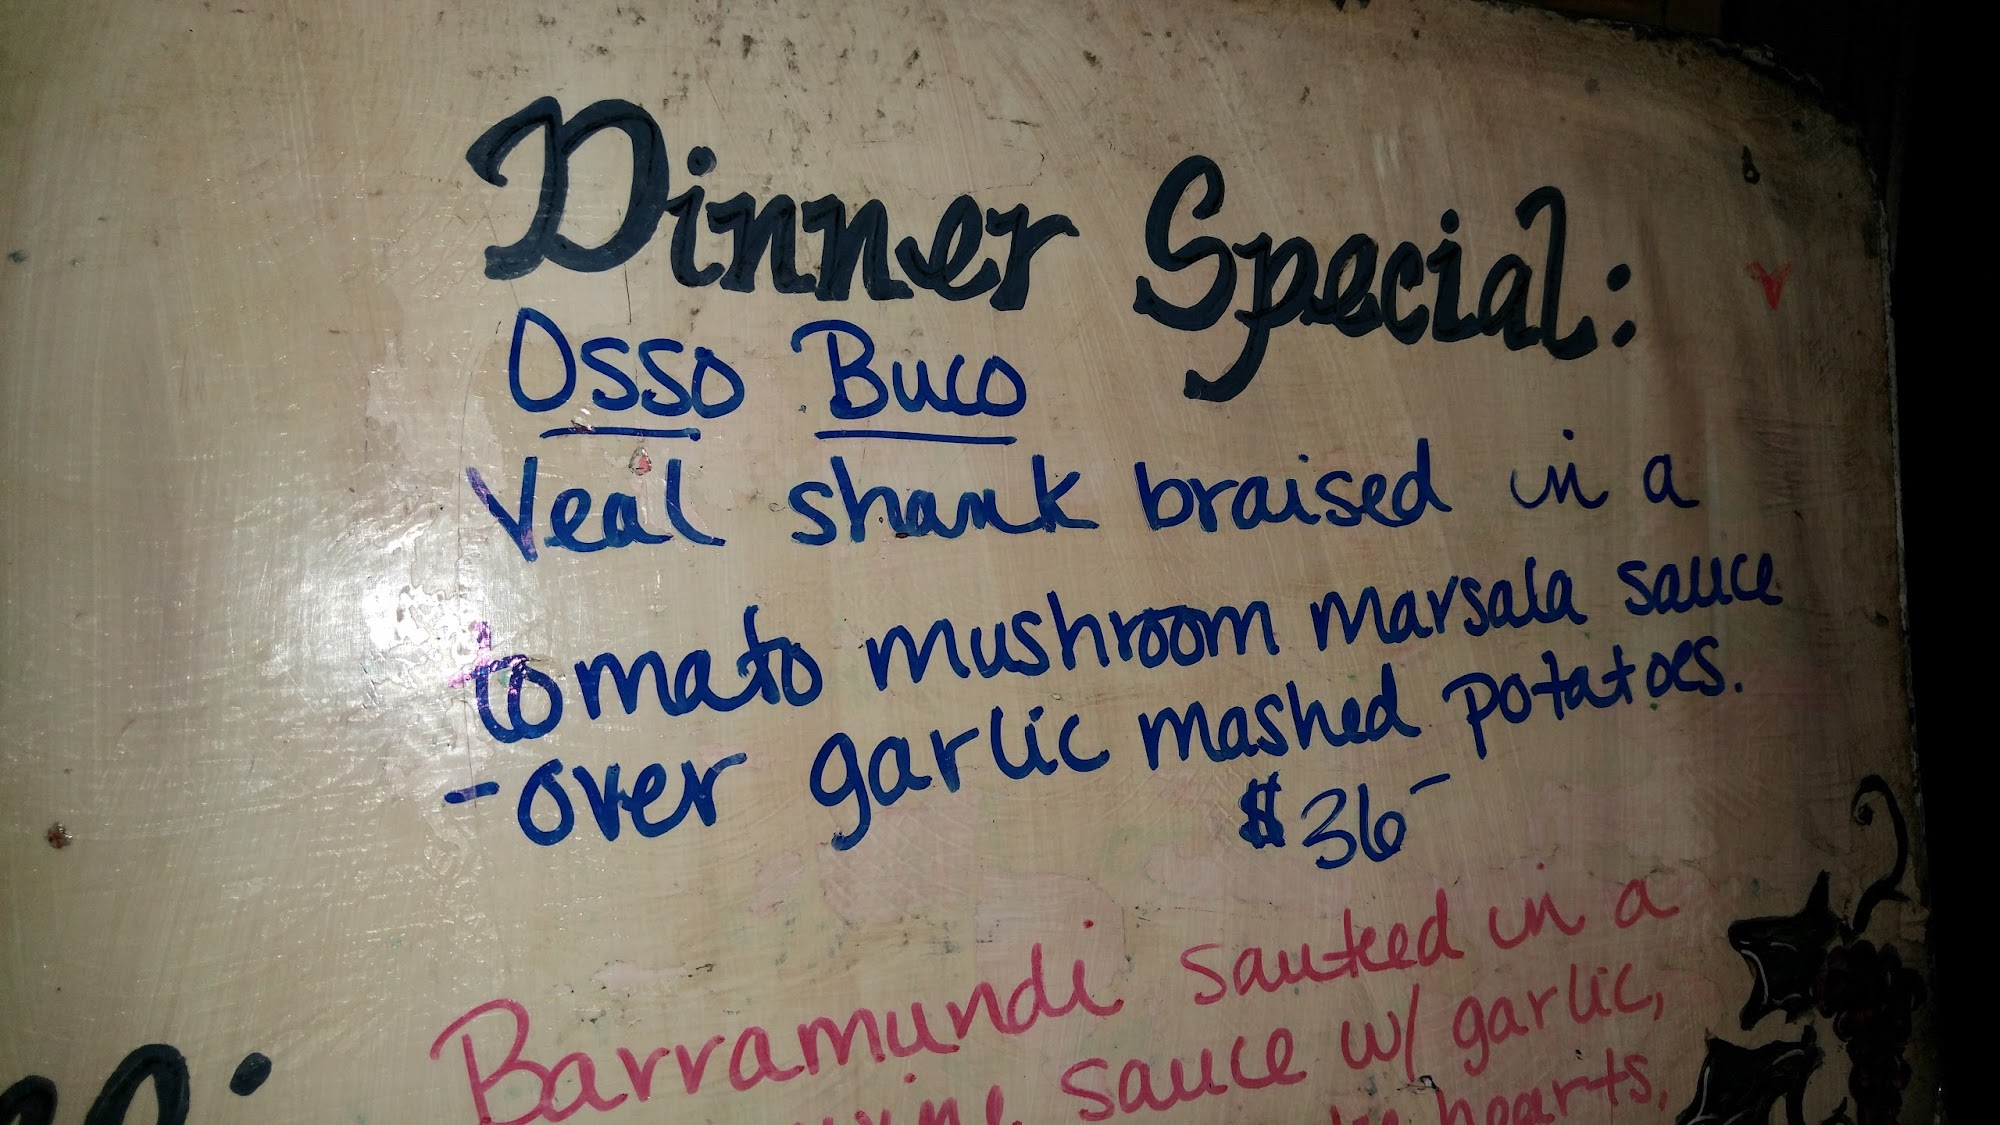 Dinner Special:
Osso Buco
Veal shank braised in a
tomato mushroom marsala sauce
-over garlic mashed potatoes.
$36-
Barramundi sauteed in a
sauce w/ garlic,
hearts,